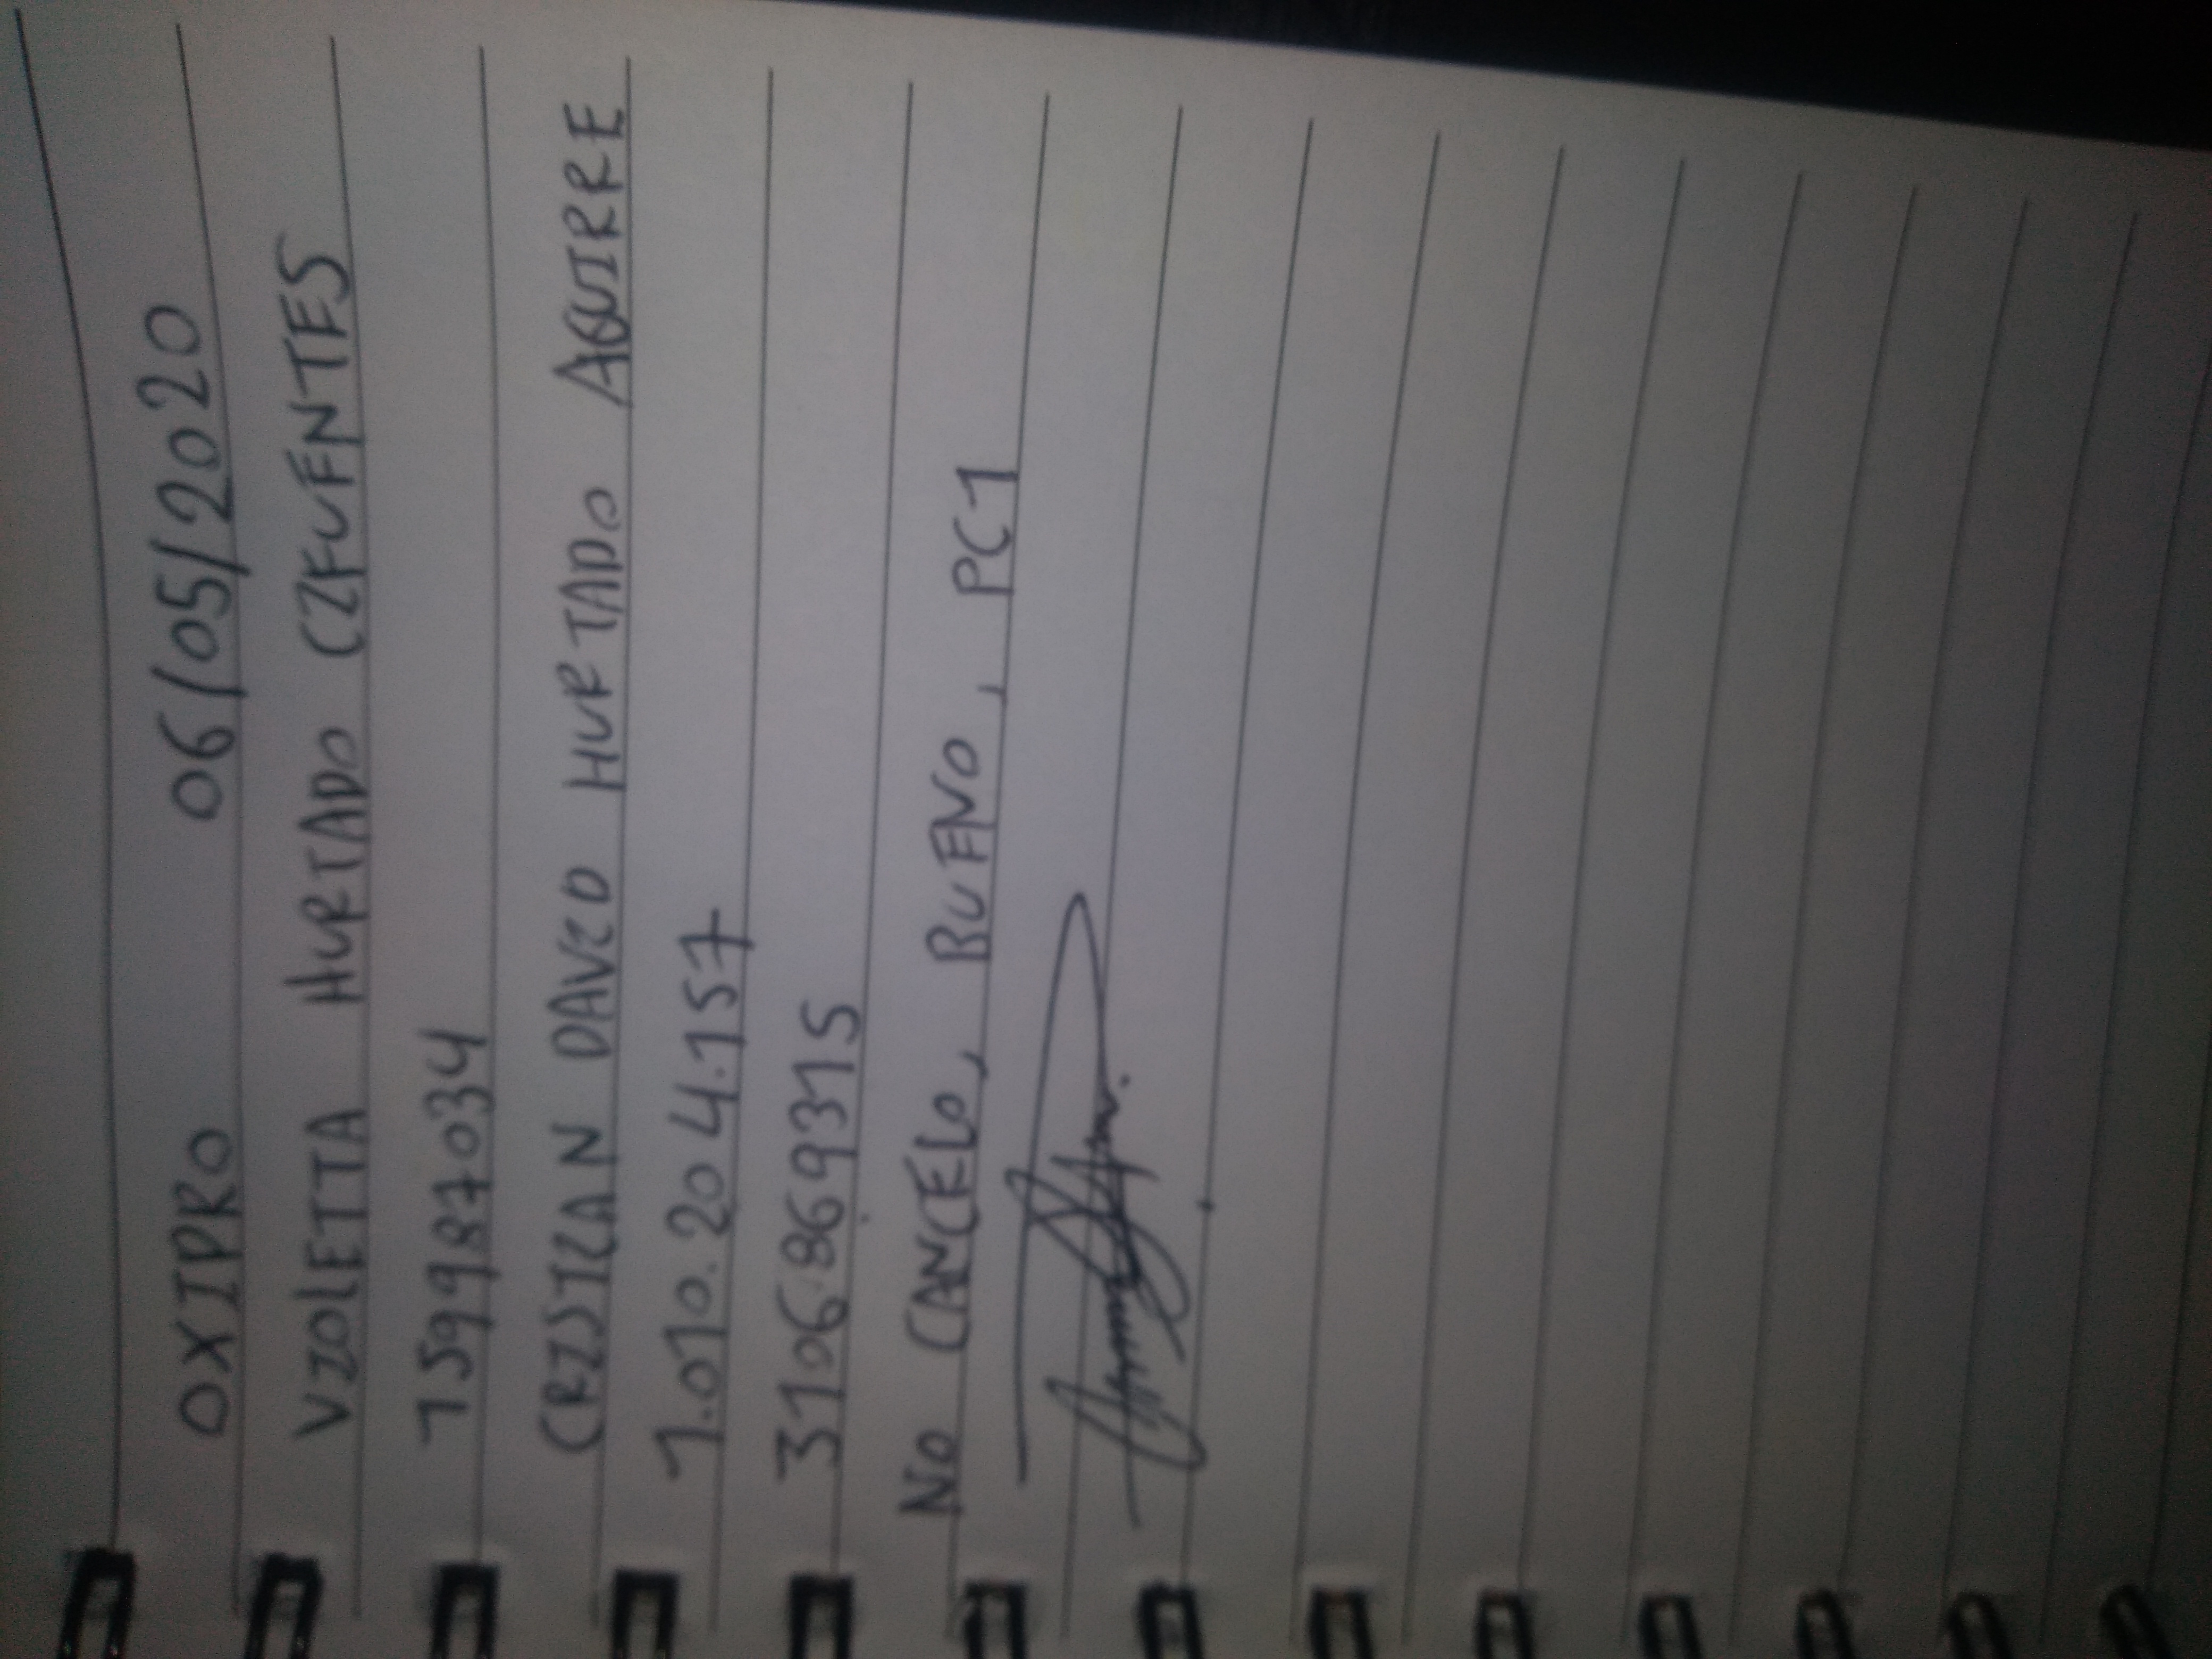 OXIPRO 06/05/2020
VIOLETTA HURTADO CIFUENTES
159987034
CRISTIAN DAVID HURTADO AGUIRRE
1.010.204.157
3106869315
NO CANCELO, BUENO, PC1